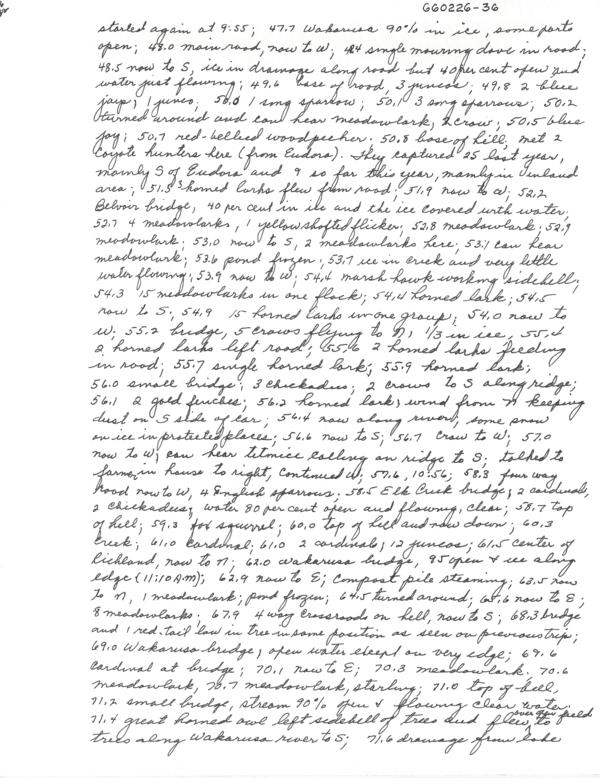 660226-36
started again at 9:55; 47.7 Wakarusa 90% in ice, some parts
open; 48.0 main road, now to W; 48.4 single mourning dove in road;
48.5 now to S, ice in drainage along road but 40 per cent open and
water just flowing; 49.6 base of road, 3 juncos; 49.8 2 blue
jays; 1 junco; 50.0 1 song sparrow; 50.1 3 song sparrows; 50.2
turned around and can hear meadowlark, 2 crow; 50.5 blue
jay; 50.7 red-bellied woodpecker. 50.8 base of hill, met 2
coyote hunters here (from Eudora). They captured 25 last year,
mainly S of Eudora and 9 so far this year, mainly in inland
area; 51.5 3 horned larks flew from road; 51.9 now to W; 52.2
Belvoir bridge, 40 per cent in ice and the ice covered with water;
52.7 4 meadowlarks, 1 yellow shafted flicker; 52.8 meadowlark; 52.9
meadowlark; 53.0 now to S, 2 meadowlarks here; 53.1 can hear
meadowlark; 53.6 pond frozen; 53.7 ice in creek and very little
water flowing; 53.9 now to W; 54.4 marsh hawk working sidehill;
54.3 15 meadowlarks in one flock; 54.4 horned lark; 54.5
now to S; 54.9 15 horned larks in one group; 54.0 now to
W. 55.2 bridge, 5 crows flying to N; 1/3 in ice, 55.4
2 horned larks left road; 55.6 2 horned larks feeding
in road; 55.7 single horned lark; 55.9 horned lark;
56.0 small bridge; 3 chickadees; 2 crows to S along ridge;
56.1 2 gold finches; 56.2 horned lark; wind from N keeping
dust on S side of car; 56.4 now along river, some snow
on ice in protected places; 56.6 now to S; 56.7 crow to W; 57.0
now to W; can hear titmice calling on ridge to S; talked to
farmer in house to right, continued W; 57.6, 10:56; 58.3 four way
road now to W, 4 English sparrows. 58.5 Elk Creek bridge; 2 cardinals,
2 chickadees, water 80 per cent open and flowing, clear; 58.7 top
of hill; 59.3 fox squirrel; 60.0 top of hill and now down; 60.3
creek; 61.0 cardinal; 61.0 2 cardinals; 12 juncos; 61.5 center of
Richland, now to N; 62.0 Wakarusa bridge, 95 open & ice along
edge (11:10 AM); 62.9 now to E; compost pile steaming; 63.5 now
to N, 1 meadowlark; pond frozen; 64.5 turned around; 65.6 now to E;
8 meadowlarks; 67.9 4 way crossroads on hill, now to S; 68.3 bridge
and 1 red-tail low in tree in same position as seen on previous trip;
69.0 Wakarusa bridge, open water except on very edge; 69.6
cardinal at bridge; 70.1 now to E; 70.3 meadowlark. 70.6
meadowlark, 70.7 meadowlark, starling; 71.0 top of hill,
71.2 small bridge, stream 90% open & flowing clear water.
71.4 great horned owl left sidehill of trees and flew over new field to
trees along Wakarusa river to S; 71.6 drainage from lake